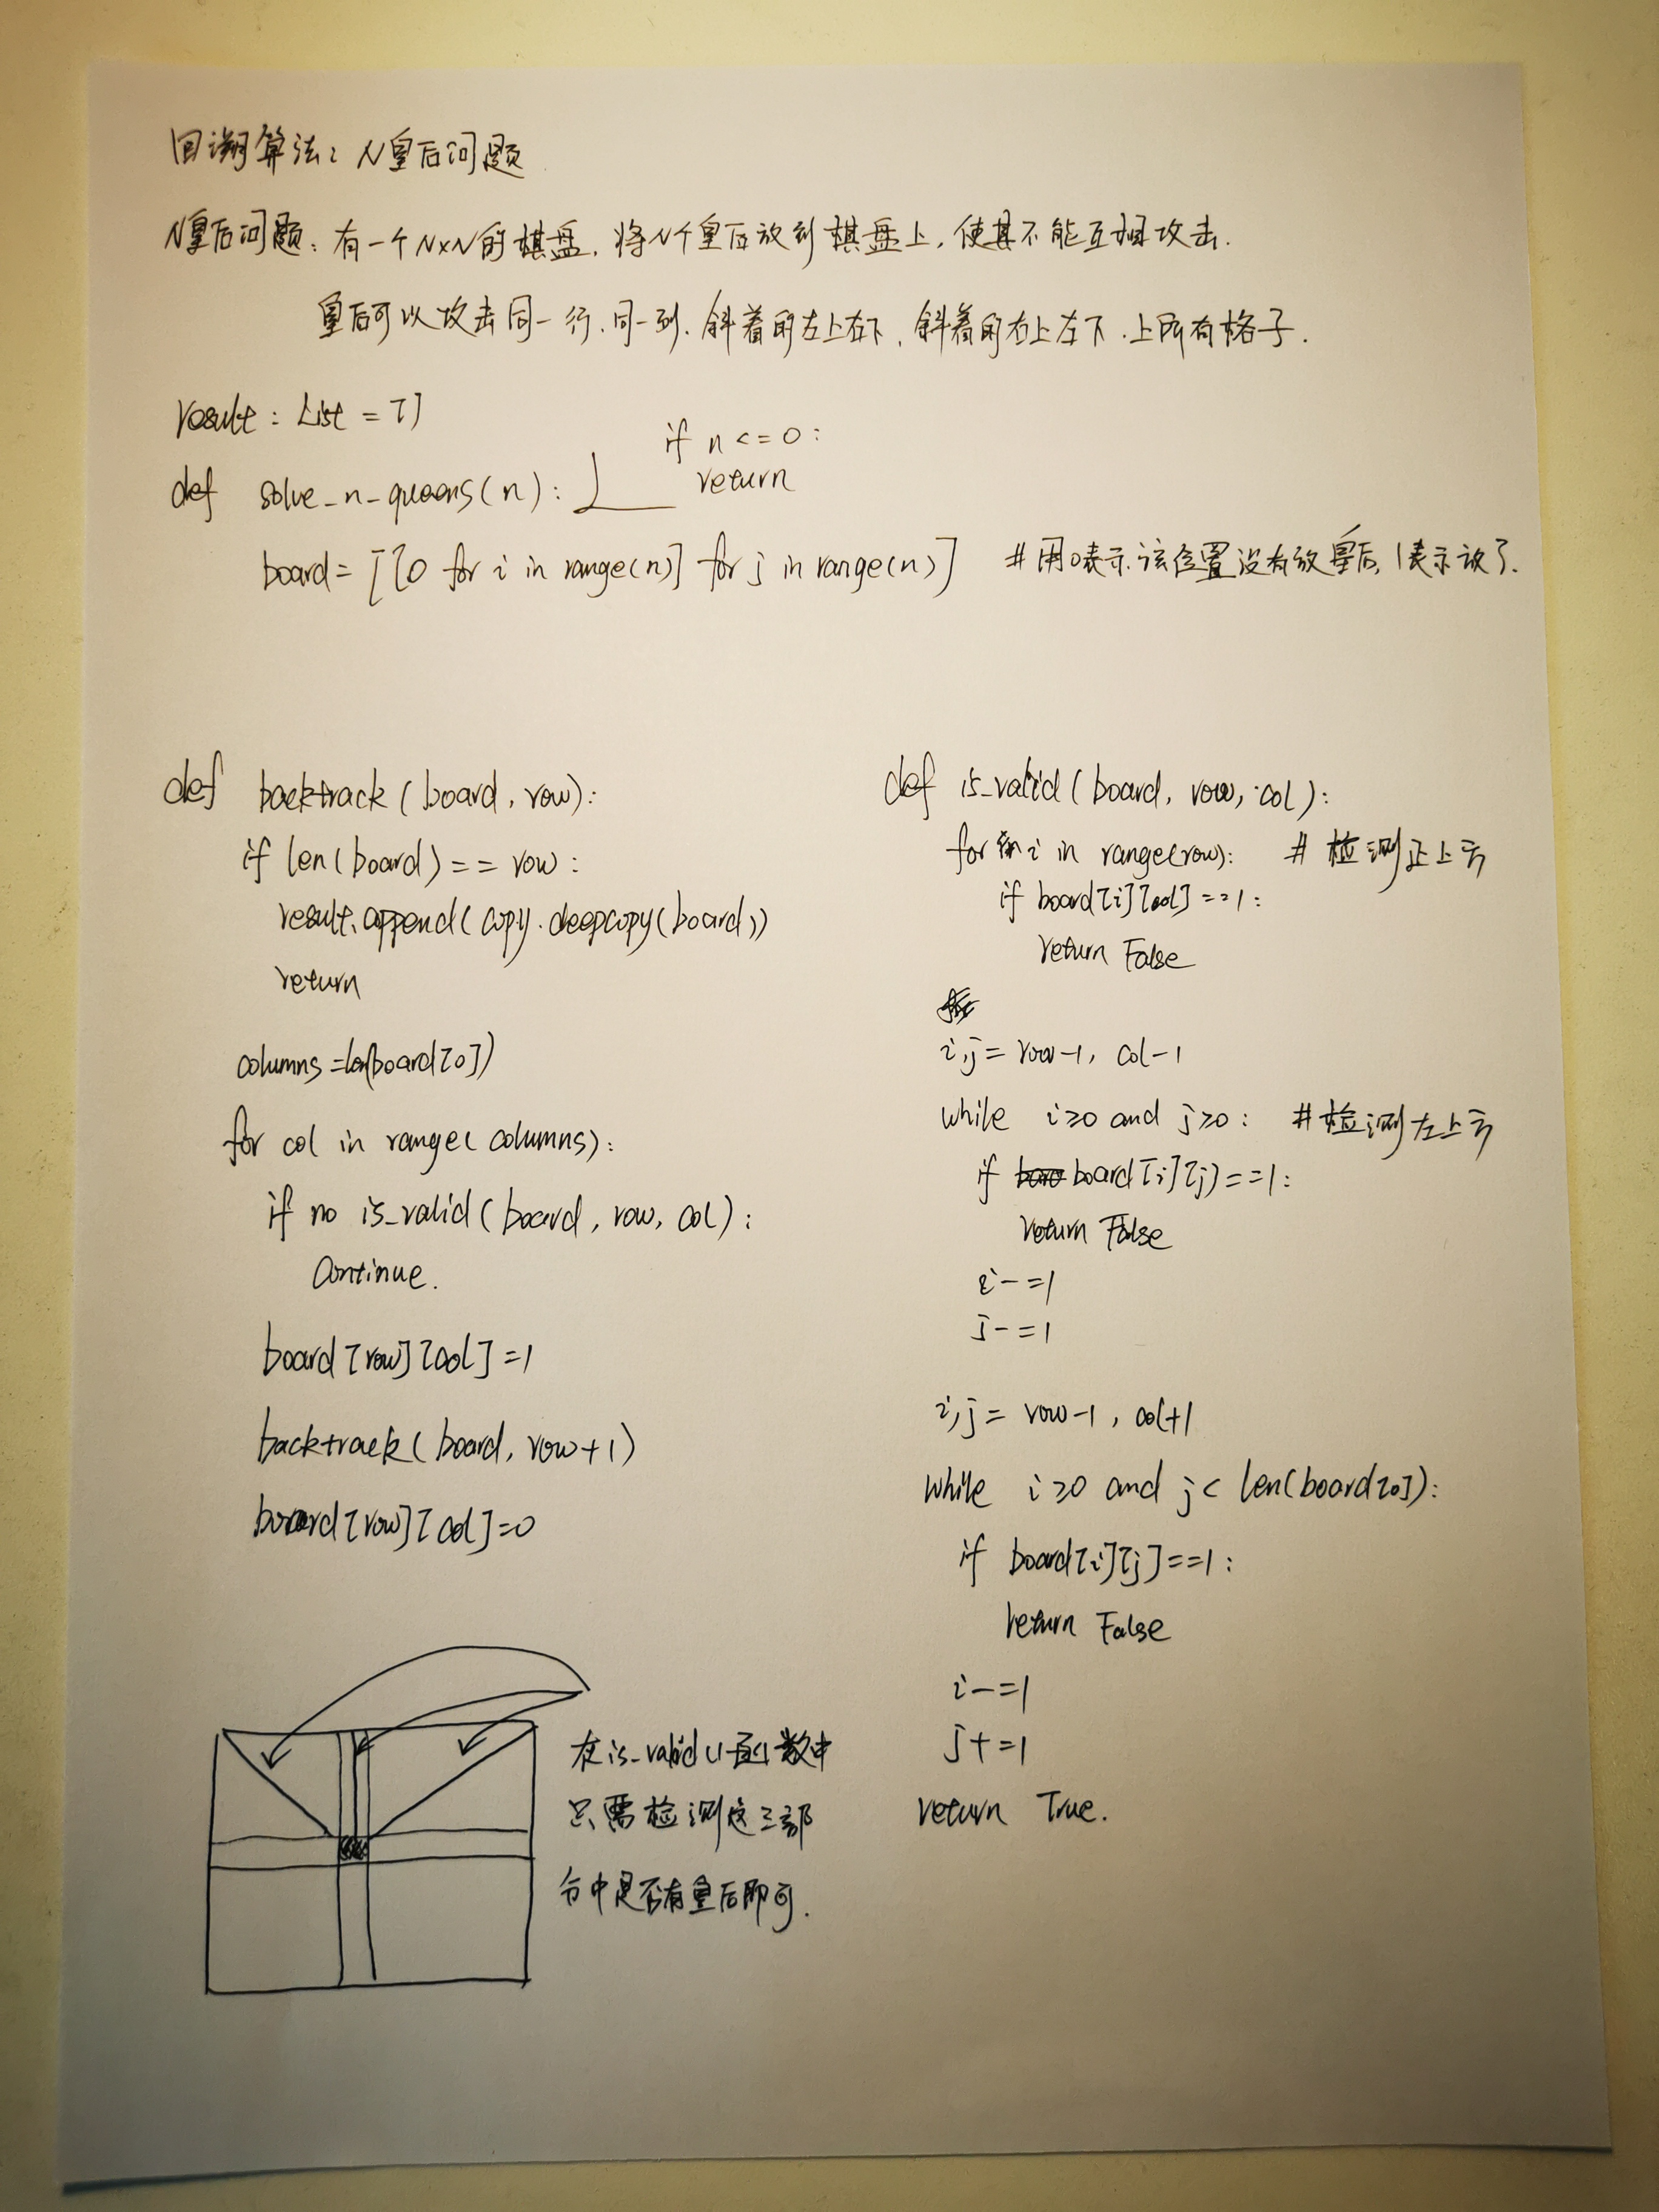 回溯算法：N皇后问题
N皇后问题：有一个N×N的棋盘，将N个皇后放到棋盘上，使其不能互相攻击.
皇后可以攻击同一行、同一列、斜着的左上右下、斜着的右上左下.上所有格子.
result : List = []
def solve_n_queens(n):
if n <= 0 :
return
board = [[0 for i in range(n)] for j in range(n)] # 用0表示该位置没有放皇后, 1表示放了.
def backtrack ( board, row):
if len(board) == row :
result.append(copy.deepcopy(board))
return
columns = len(board[0])
for col in range( columns):
if no is_valid( board, row, col) :
continue.
board[row][col] = 1
backtrack( board, row+1)
board[row][col]=0
def is_valid( board, row, col) :
for i in range(row): # 检测正上方
if board[i][col] ==1 :
return False
i,j = row-1, col-1
while i≥0 and j≥0 : # 检测左上方
if board[i][j]==1:
return False
i-=1
j-=1
i,j = row-1, col+1
while i≥0 and j< len(board[0]):
if board[i][j]==1 :
return False
i-=1
j+=1
return True.
在is_valid()函数中
只需检测这三部
分中是否有皇后即可.